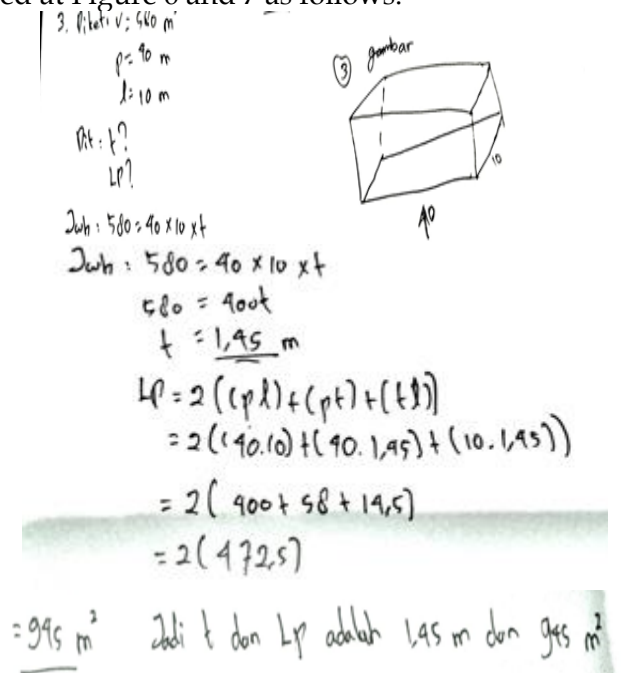 ed at Figure 6 and 7 as follows:
3. Diketi V: 580 m
p = 40 m
l = 10 m
Dit : t?
LP?
③ gambar
10
40
Jwb : 580 = 40 x 10 x t
Jwb : 580 = 40 x 10 x t
580 = 400t
t = 1,45 m
LP = 2((pl)+(pt)+(tl))
= 2((40.10)+(40.1,45)+(10.1,45))
= 2(400+58+14,5)
= 2(472,5)
= 945 m² Jadi t dan Lp adalah 1,45 m dan 945 m²